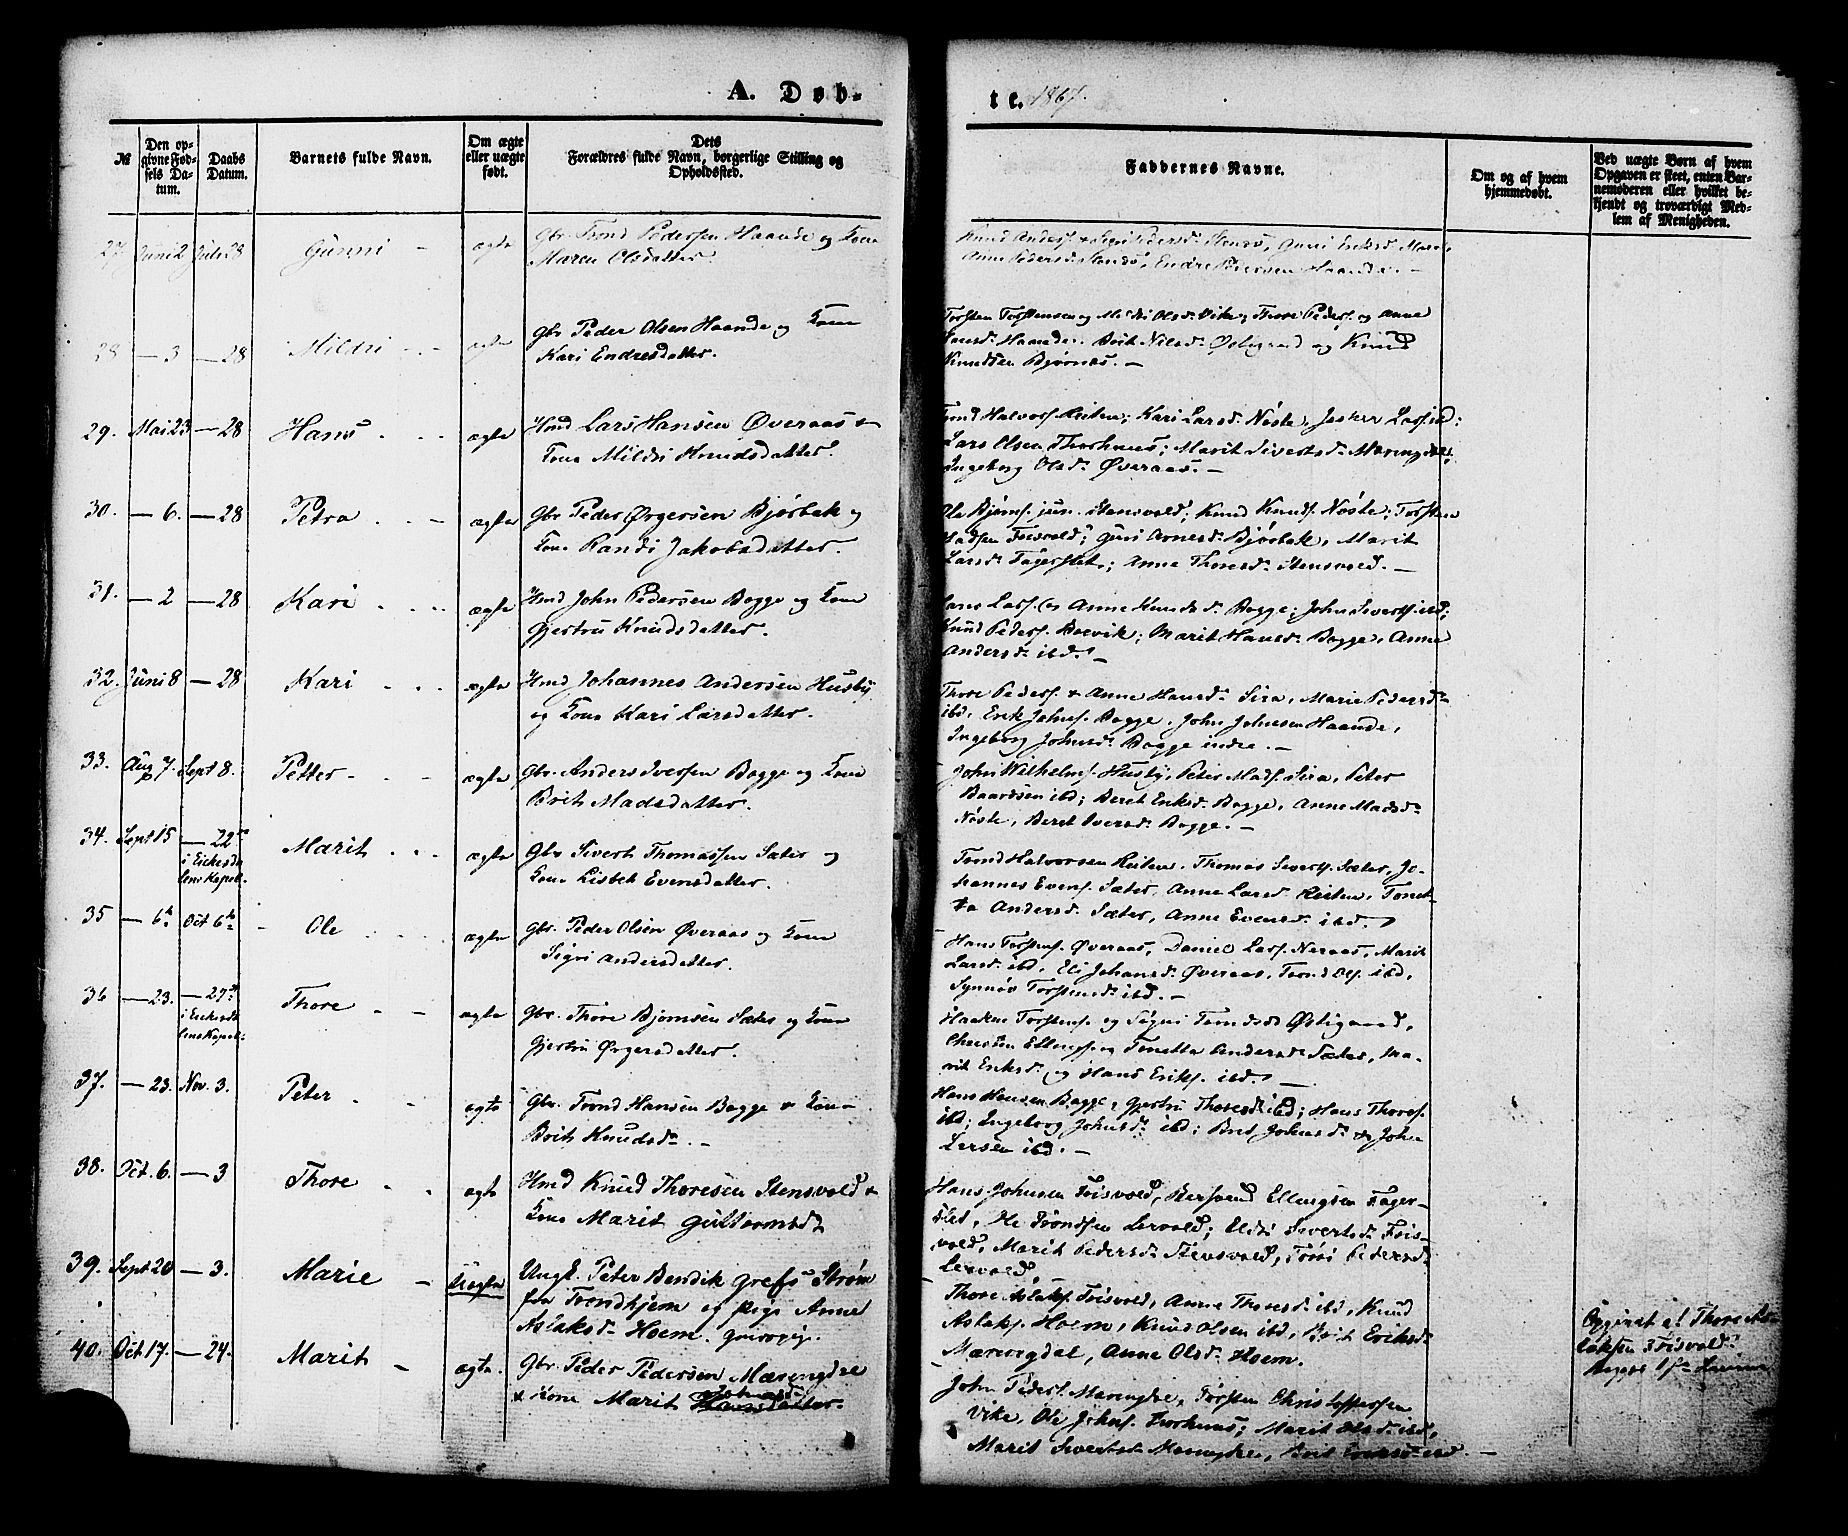 A. Døb-
te. 1867.
№
Den op-
givne Fød-
sels Da-
tum.
Daabs
Datum.
Barnets fulde Navn.
Om ægte
eller uægte
født.
Dets
Forældres fulde Navn, borgerlige Stilling og
Opholdssted.
Faddernes Navne.
Om og af hvem
hjemmedøbt.
Ved uægte Børn af hvem
Opgaven er skeet, enten Bar-
nemoderen eller hvilket be-
kjendt og troværdigt Med-
lem af Menigheden.
27. Juni 2 Juli 28 Gunni – ægte Gbr. Trond Pedersen Haande og Kone
Maren Olsdatter
Knud Anders. & Sigri Pedersd. Stensø, Guri Eriksd.
Anne Pedersd. Stensø, Endre Pedersen Haande. –
28 – 3 – 28 Mildri – ægte Gbr Peder Olsen Haande og Kone
Kari Endresdatter.
Torsten Torstensen og Mildri Olsd. Vike, Thore Peders. og Anne
Haande. Brit Nilsd. Østigaard og Knud
Knudsen Bjørnaas. –
29. Mai 23 – 28 Hans ægte Hmd Lars Hansen Øveraas &
Kone Mildri Knudsdatter.
Trond Halvors. Reiten; Kari Larsd. Nøste, Jesper Lars. ibd:
Lars Olsen Thorhuus; Marit Sivertsd. Mæringdal;
Ingeborg Olsd. Øveraas. –
30. – 6. – 28 Petra – ægte Gbr Peder Ørgersen Bjørbak og
Kone Randi Jakobsdatter.
Ole Bjørns. jun. Stensvold; Knud Knuds. Nøste; Torsten
Madsen Frisvold; Guri Arnesd. Bjørbak, Marit
Larsd. Fagerslet; Anne Thoresd. Stensvold. –
31. – 2 – 28 Kari ægte Hmd John Pedersen Bogge og Kone
Gjertru Knudsdatter.
Lars Lars. og Anne Knudsd. Bogge; John Siverts. ibd;
Knud Peders. Boevik; Marit Hansd. Bogge, Anne
Andersd. ibd. –
32. Juni 8 – 28 Kari ægte Hmd Johannes Andersen Husby
og Kone Kari Larsdatter.
Thore Peders. & Anne Hansd. Sira, Marie Pedersd.
ibd, Erik Johns. Bogge, John Johnsen Haande,
Ingeborg Johnsd. Bogge indre. –
33. Aug 7. Sept 8. Petter – ægte Gbr. Anders Iversen Bogge og Kone
Brit Madsdatter.
John Wilhelms. Husby, Peter Mads. Sira, Peter
Baardsen ibd; Beret Eriksd. Bogge, Anne Madsd.
Nøste, Beret Iversd. Bogge. –
34. Sept 15 – 22de
i Eikesda
lens Kapel.
Marit ægte Gbr Sivert Thomassen Sæter og
Kone Lisbet Evensdatter.
Trond Halvorsen Reiten. Thomas Siverts. Sæter, Jo-
hannes Evens. Sæter, Anne Larsd. Reiten, Tonet-
ta Andersd. Sæter, Anne Evensd. ibd.
35 – 6te Oct 6te Ole ægte Gbr. Peder Olsen Øveraas og Kone
Sigri Andersdatter.
Hans Torstens. Øveraas, Daniel Lars. Neraas, Marit
Larsd. ibd, Eli Johansd. Øveraas, Trond Ols. ibd,
Synnøv Torstensd. ibd. –
36 – 23. – 29de
i Eikesda
lens Kapel.
Thore – – ægte Gbr. Thore Bjørnsen Sæter og Kone
Gjertru Ørgersdatter.
Haaken Torstens. og Sigri Trondsd. Østigaard,
Christen Ellings. og Tonetta Andersd. Sæter, Ma-
rit Eriksd. og Hans Eriks. ibd. –
37. – 23. Nov. 3. Peter ægte Gbr. Trond Hansen Bogge & Kone
Brit Knudsd. –
Hans Hansen Bogge, Gjertru Thoresd. ibd; Hans Thores.
ibd; Ingeborg Johnsd. ibd; Brit Johnsd. & John
Larsen ibd. –
38. Oct. 6. – 3 Thore ægte Hmd Knud Thoresen Stensvold &
Kone Marit Guttormsdt
Hans Johnsen Frisvold, Bersvend Ellingsen Fager-
slet, Ole Trondsen Lervold; Eldri Sivertsd. Fris-
vold, Marit Pedersd. Stensvold, Pedersd.
Lervold
39. Sept 20 – 3. Marie – Uægte Ungk. Peter Bendik Grefs Strøm
fra Trondhjem og pige Anne
Aslaksd. Hoem.
Thore Aslaks. Frisvold, Anne Thoresd. ibd, Knud
Aslaks. Hoem, Knud Olsen ibd, Brit Eriksd.
Mæringdal, Anne Olsd. Hoem.
Opgivet af Thore As-
laksen Frisvold.
40. Oct. 17. – 24. Marit – ægte. Gbr. Peder Pedersen Mæringdal
& Kone Marit Johnsd.
Hansdatter.
John Peders. Mæringdal, Torsten Christoffersen
Vike, Ole Johns. Torhuus; Marit Olsd. ibd,
Marit Sivertsd. Mæringdal, Brit Eriksd. ibd. –